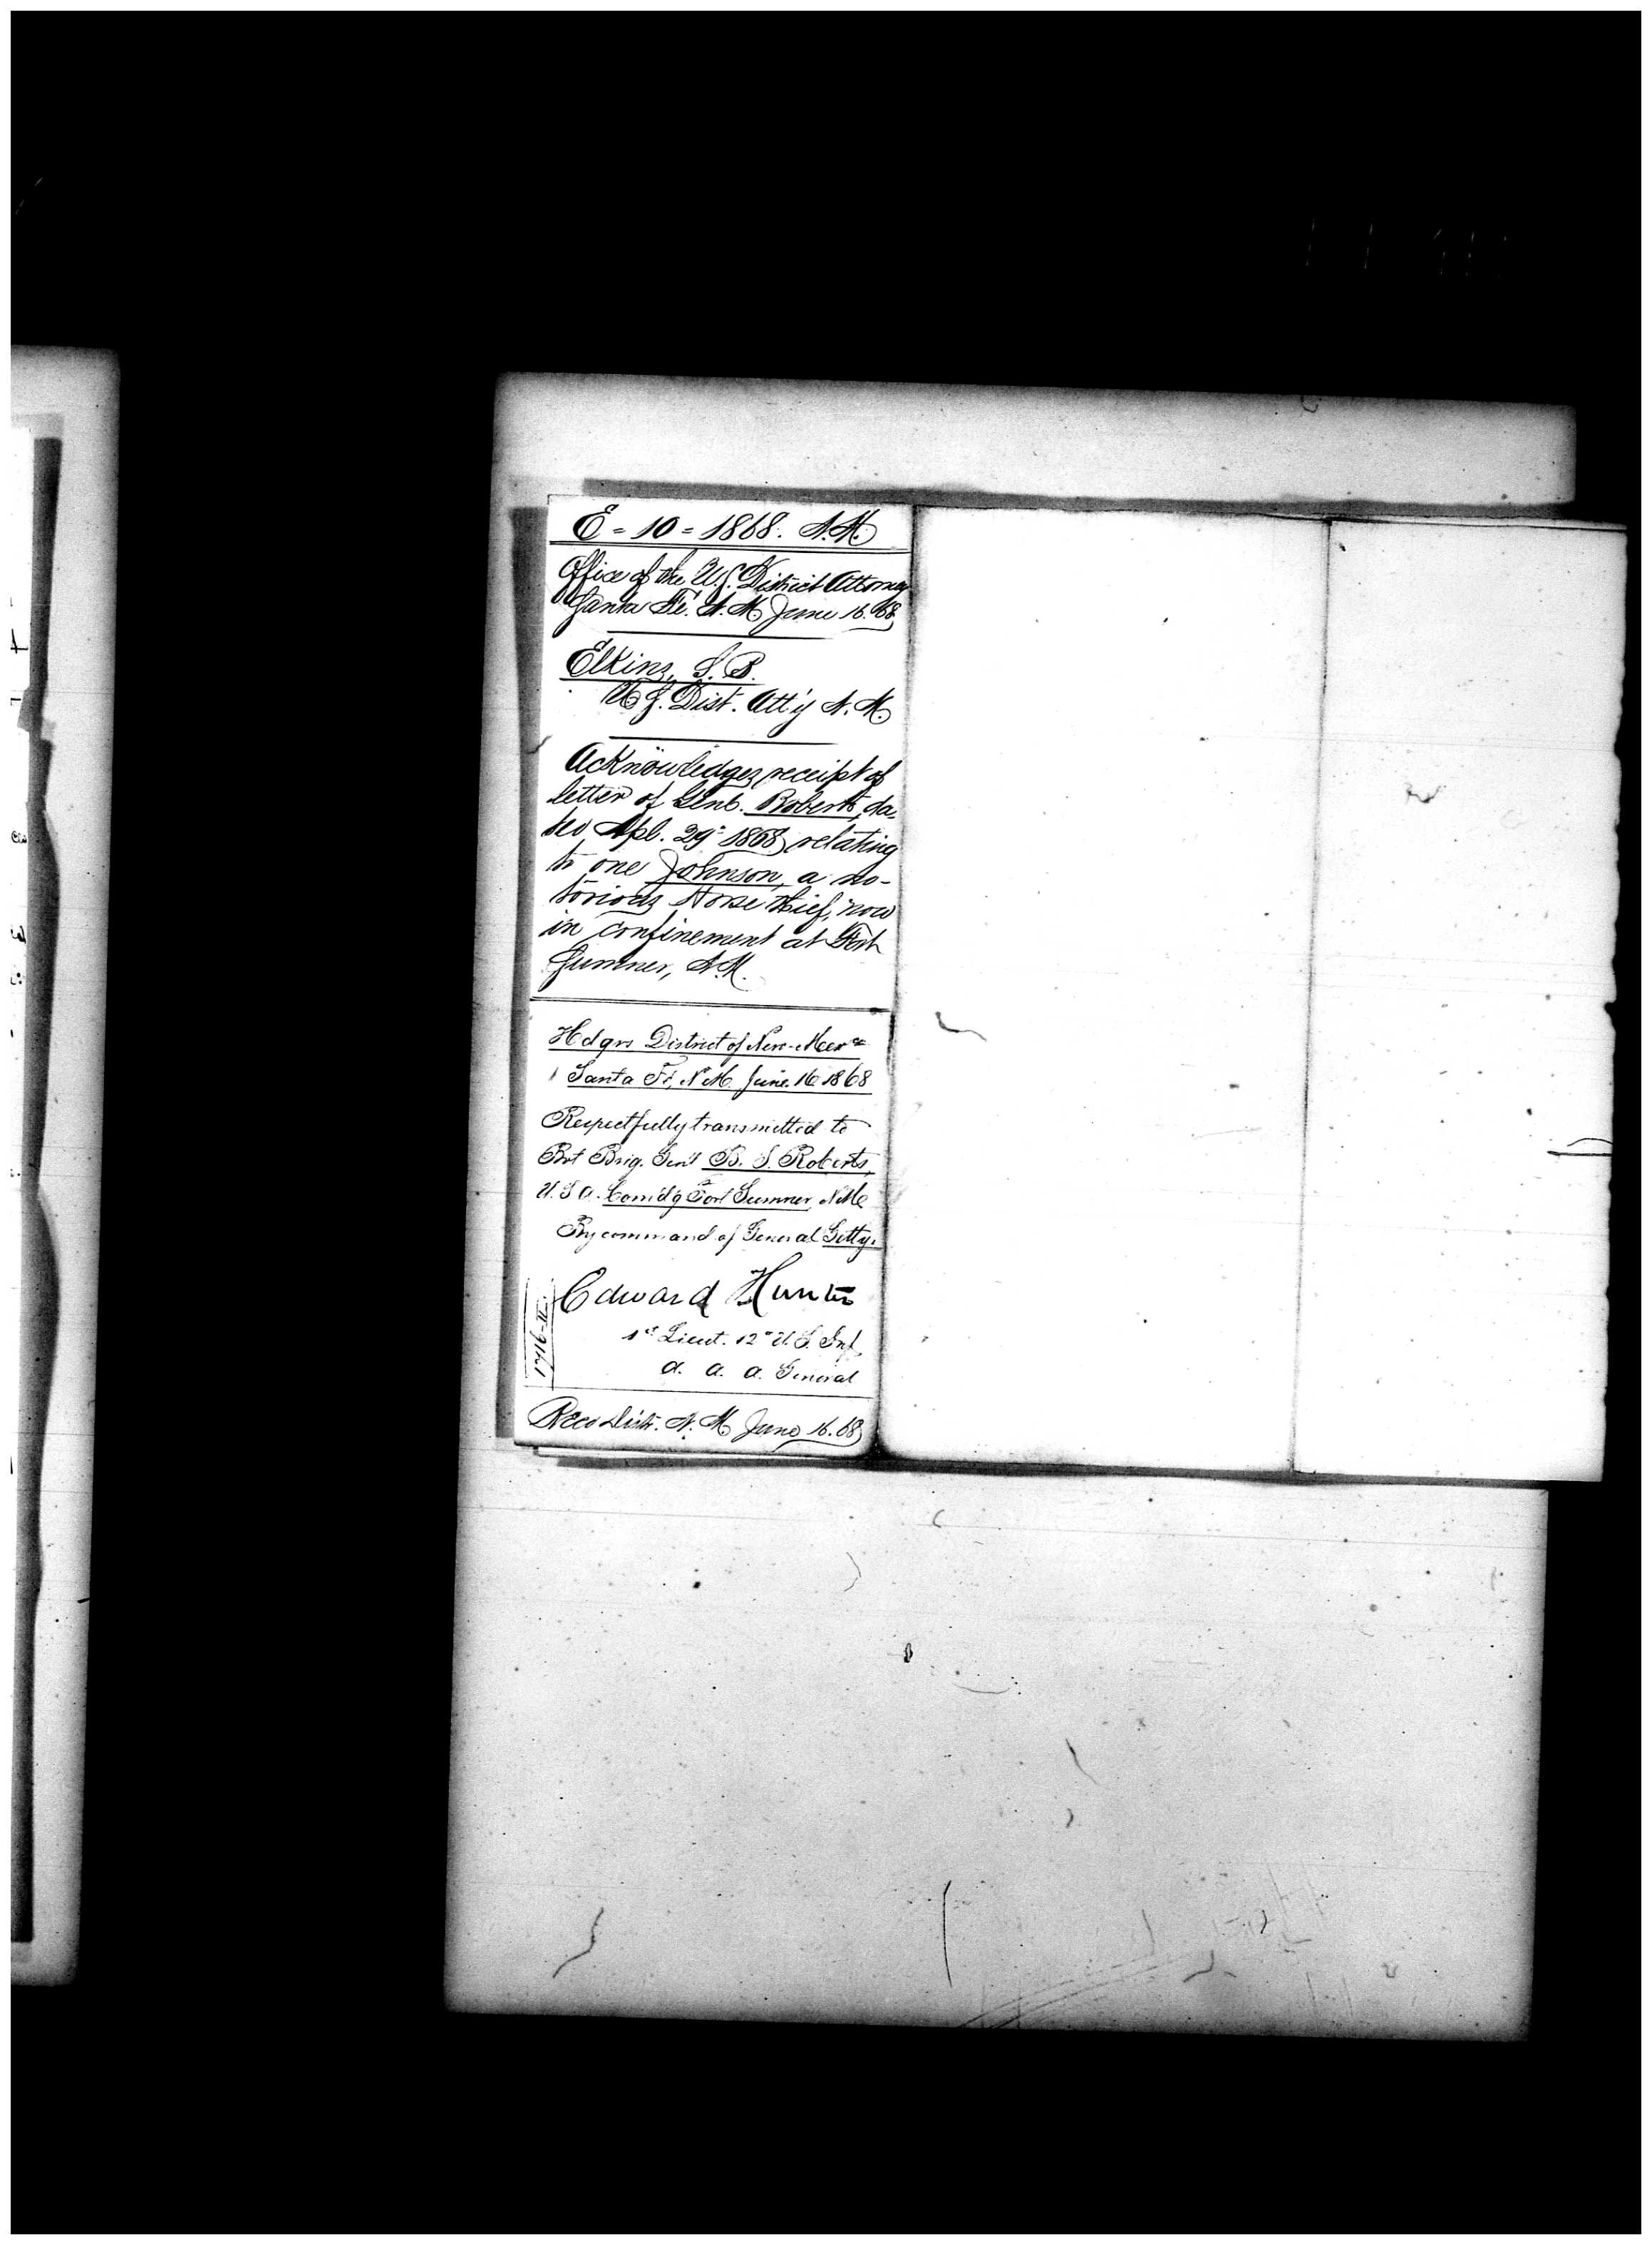 E = 10 = 1868. N.M.
Office of the U.S. District Attorney
Santa Fé. N. M. June 16. 68
Elkins, S. B.
U S. Dist. Att'y N. M.
Acknowledges receipt of
letter of Genl. Roberts, da-
ted Apl. 29" 1868, relating
to one Johnson, a no-
torious Horse thief, now
in confinement at Fort
Sumner, N. M.
Hdqrs District of New-Mexco
Santa Fé, N.M. June 16 1868
Respectfully transmitted to
Bvt Brig. Gen'l B. S. Roberts,
U. S A. Comd'g Fort Sumner, N.M.
By command of General Getty.
Edward Hunter
1st Lieut. 12" U. S. Inf
a. a. a. General
Recd Distr. N. M June 16. 68